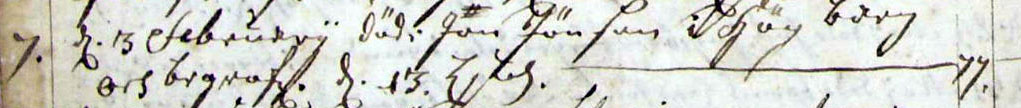 7. d. 3 Februarij död: Jon Jönson i Högbärg
och begrofz. d. 13. Ejusd. 77.